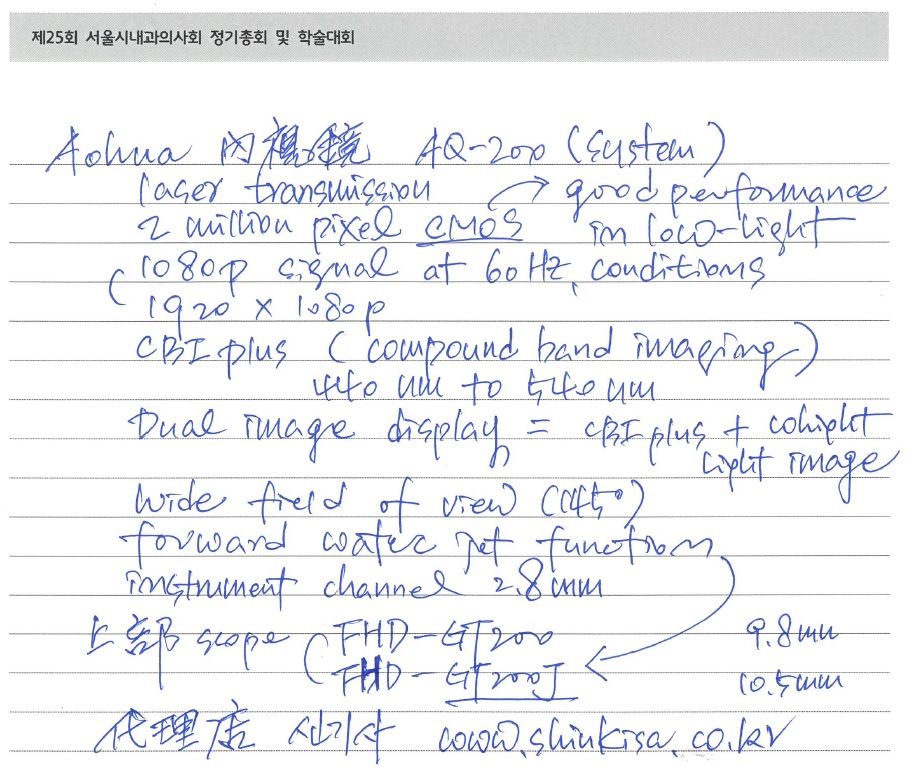 제25회 서울시내과의사회 정기총회 및 학술대회
Aohua 內視鏡 AQ-200 (system)
laser transmission → good performance
2 million pixel CMOS in low-light
1080p signal at 60Hz, conditions
1920 x 1080p
CBI plus (compound band imaging)
440 nm to 540 nm
Dual image display = CBI plus + white
light image
wide field of view (145°)
forward water jet function
instrument channel 2.8mm
上部 scope FHD-GT200 9.8mm
FHD-GT200J 10.5mm
代理店 신기사 www.shinkisa.co.kr